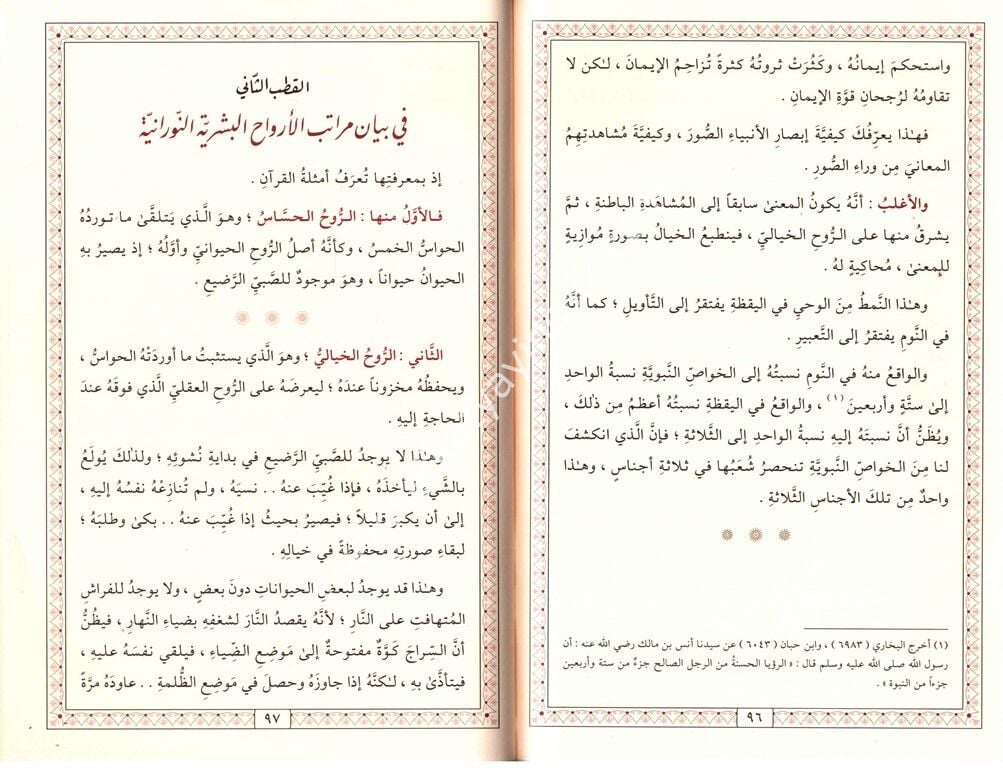 واستحكمَ إيمانُهُ ، وكَثُرَتْ ثروتُهُ كثرةً تُزاحِمُ الإيمانَ ، لـٰكن لا
تقاومُهُ لرُجحانِ قوَّةِ الإيمانِ .
فهـٰذا يعرِّفُكَ كيفيَّةَ إبصارِ الأنبياءِ الصُّورَ ، وكيفيَّةَ مُشاهدتِهِمُ
المعانيَ مِن وراءِ الصُّورِ .
والأغلبُ : أنَّهُ يكونُ المعنىٰ سابقاً إلى المُشاهَدةِ الباطنةِ ، ثمَّ
يشرقُ منها على الرُّوحِ الخياليِّ ، فينطبعُ الخيالُ بصورةٍ مُوازيةٍ
للمعنىٰ ، مُحاكيةٍ لهُ .
وهـٰذا النَّمطُ مِنَ الوحيِ في اليقظةِ يفتقرُ إلى التَّأويلِ ؛ كما أنَّهُ
في النَّومِ يفتقرُ إلى التَّعبيرِ .
والواقعُ منهُ في النَّومِ نسبتُهُ إلى الخواصِّ النَّبويَّةِ نسبةُ الواحدِ
إلىٰ ستَّةٍ وأربعينَ (١) ، والواقعُ في اليقظةِ نسبتُهُ أعظمُ مِن ذٰلكَ ،
ويُظَنُّ أنَّ نسبتَهُ إليهِ نسبةُ الواحدِ إلى الثَّلاثةِ ؛ فإنَّ الَّذي انكشفَ
لنا مِنَ الخواصِّ النَّبويَّةِ تنحصرُ شُعَبُها في ثلاثةِ أجناسٍ ، وهـٰذا
واحدٌ مِن تلكَ الأجناسِ الثَّلاثةِ .
(١) أخرج البخاري ( ٦٩٨٣ ) ، وابن حبان ( ٦٠٤٣ ) عن سيدنا أنس بن مالك رضي الله عنه : أن
رسول الله صلى الله عليه وسلم قال : « الرؤيا الحسنةُ من الرجل الصالح جزءٌ من ستة وأربعين
جزءاً من النبوة » .
٩٦
القطب الثّاني
في بيان مراتب الأرواح البشريّة النّورانيّة
إذ بمعرفتِها تُعرَفُ أمثلةُ القرآنِ .
فـالأوَّلُ منها : الـرُّوحُ الحسَّاسُ ؛ وهـوَ الَّـذي يَتـلقَّىٰ مـا تـوردُهُ
الحواسُّ الخمسُ ، وكأنَّهُ أصلُ الرُّوحِ الحيوانيِّ وأوَّلُهُ ؛ إذ يصيرُ بهِ
الحيوانُ حيواناً ، وهوَ موجودٌ للصَّبيِّ الرَّضيعِ .
الثَّاني : الرُّوحُ الخياليُّ ؛ وهوَ الَّذي يستثبتُ ما أوردَتْهُ الحواسُّ ،
ويحفظُهُ مخزوناً عندَهُ ؛ ليعرضَهُ على الرُّوحِ العقليِّ الَّذي فوقَهُ عندَ
الحاجةِ إليهِ .
وهـٰذا لا يوجدُ للصَّبيِّ الرَّضيعِ في بدايةِ نُشوئِهِ ؛ ولذٰلكَ يُولَعُ
بالشَّيءِ ليأخذَهُ ، فإذا غُيِّبَ عنهُ . . نسيَهُ ، ولم تُنازِعْهُ نفسُهُ إليهِ ،
إلىٰ أن يكبرَ قليلاً ؛ فيصيرُ بحيثُ إذا غُيِّبَ عنهُ . . بكىٰ وطلبَهُ ؛
لبقاءِ صورتِهِ محفوظةً في خيالِهِ .
وهـٰذا قد يوجدُ لبعضِ الحيواناتِ دونَ بعضٍ ، ولا يوجدُ للفراشِ
المُتهافتِ على النَّارِ ؛ لأنَّهُ يقصدُ النَّارَ لشغفِهِ بضياءِ النَّهارِ ، فيظُنُّ
أنَّ السِّراجَ كَوَّةٌ مفتوحةٌ إلىٰ مَوضِعِ الضِّياءِ ، فيلقي نفسَهُ عليهِ ،
فيتأذَّىٰ بهِ ، لـٰكنَّهُ إذا جاوزَهُ وحصلَ في مَوضِعِ الظُّلمةِ . . عاودَهُ مرَّةً
٩٧